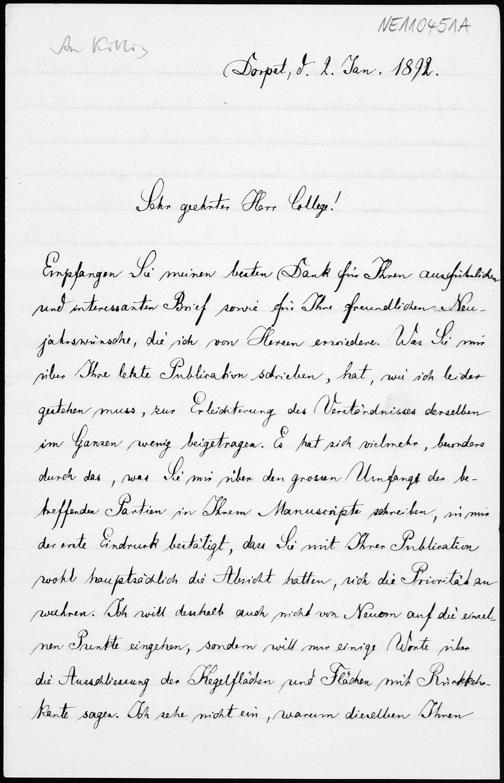 NE110451A
An Killing
Dorpat, d. 2. Jan. 1892.
Sehr geehrter Herr College!
Empfangen Sie meinen besten Dank für Ihren ausführlichen
und interessanten Brief sowie für Ihre freundlichen Neu-
jahrswünsche, die ich von Herzen erwiedere. Was Sie mir
über Ihre letzte Publication schrieben, hat, wie ich leider
gestehen muss, zur Erleichterung des Verständnisses derselben
im Ganzen wenig beigetragen. Es hat sich vielmehr, besonders
durch das, was Sie mir über den grossen Umfang der be-
treffenden Partien in Ihrem Manuscripte schreiben, in mir
der erste Eindruck bestätigt, dass Sie mit Ihrer Publication
wohl hauptsächlich die Absicht hatten, sich die Priorität zu
wahren. Ich will deshalb auch nicht von Neuem auf die einzel-
nen Punkte eingehen, sondern will nur einige Worte über
die Ausschliessung der Kegelflächen und Flächen mit Rückkehr-
kante sagen. Ich sehe nicht ein, warum dieselben Ihnen